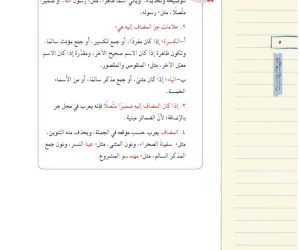 توضيحه وتحديده، ويأتي اسمًا ظاهرًا، مثل: رسول الله، أو ضمير
متصلًا، مثل: رسوله.
٢. علامات جرّ المضاف إليه هي:
أ-الكسرة: إذا كان مفردًا، أو جمع تكسير، أو جمع مؤنث سالمًا.
وتكون ظاهرة إذا كان الاسم صحيح الآخر، ومقدّرة إذا كان الاسم
معتل الآخر، مثل: المنقوص والمقصور.
ب-الياء: إذا كان مثنىً، أو جمع مذكر سالمًا، أو من الأسماء
الخمسة.
٣. إذا كان المضاف إليه ضميرًا متصلًا فإنه يعرب في محل جر
بالإضافة؛ لأن الضمائر مبنية.
٤. المضاف يعرب حسب موقعه في الجملة، ويحذف منه التنوين،
مثل: سفينة الصحراء، ونون المثنى، مثل: عينا النسر، ونون جمع
المذكر السالم، مثل: مهندسو المشروع.